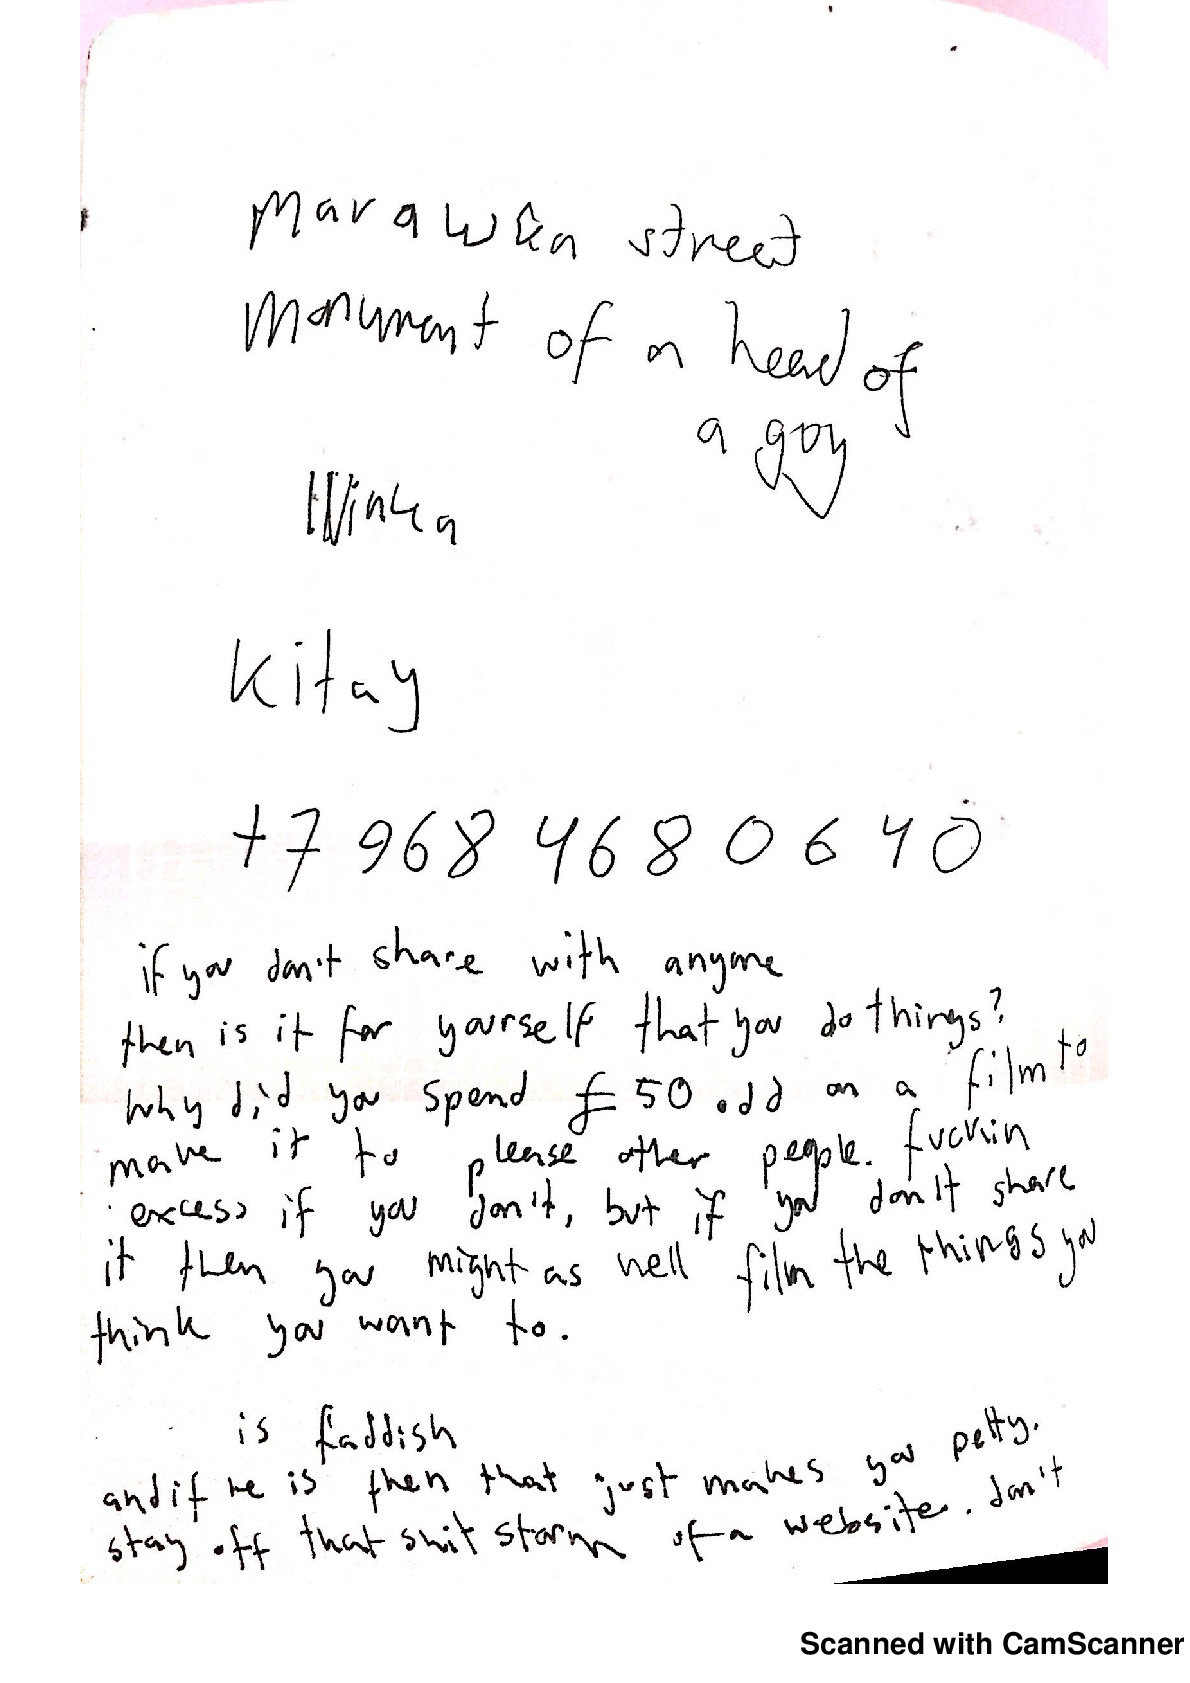 Marawka street
Monument of a head of
a goy
Illinka
Kitay
+7 968 468 06 40
if you don't share with anyone
then is it for yourself that you do things?
why did you spend £50 odd on a film to
make it to please other people. fuckin
excess if you don't, but if you don't share
it then you might as well film the things you
think you want to.
is faddish
and if he is then that just makes you petty.
stay off that shit storm of a website. don't
Scanned with CamScanner